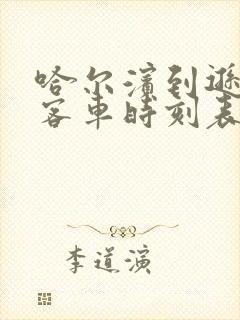 哈尔滨到逊
客车时刻表
李道演